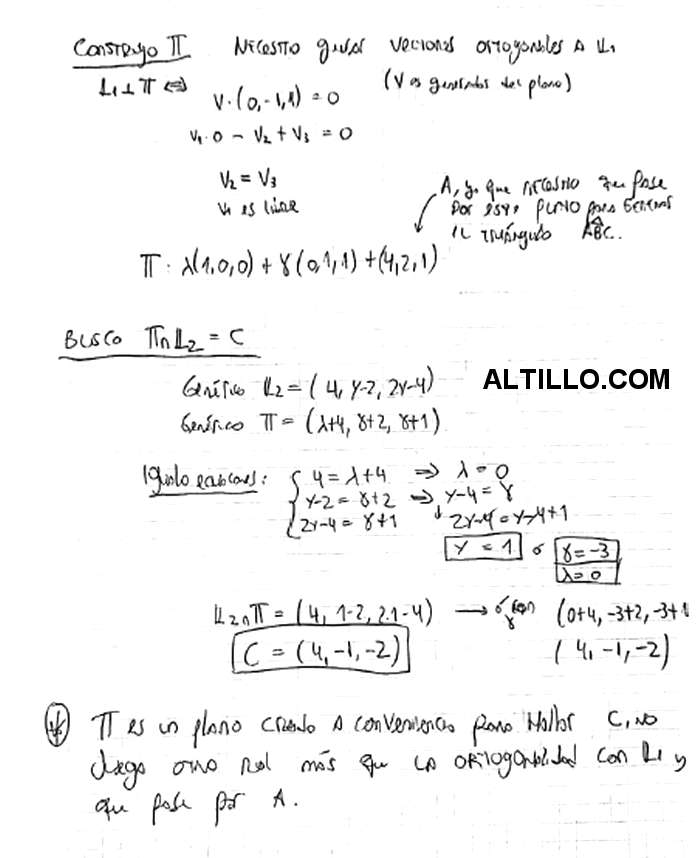 Construyo Π Necesito vectores ortogonales a L₁
L₁ ⊥ Π ⇔ V·(0,-1,1) = 0 (V es generador del plano)
V₁·0 - V₂ + V₃ = 0
V₂ = V₃
V₁ es libre
A, ya que necesito que pase
por ese plano para generar
el triángulo ABC.
Π: λ(1,0,0) + γ(0,1,1) + (4,2,1)
Busco Π∩L₂ = C
Genérico L₂ = (4, Y-2, 2Y-4)
ALTILLO.COM
Genérico Π = (λ+4, γ+2, γ+1)
Igualo : 4 = λ+4 ⇒ λ = 0
Y-2 = γ+2 → Y-4 = γ
2Y-4 = γ+1 2Y-4 = Y-4+1
Y = 1 ó γ = -3
λ = 0
L₂∩Π = (4, 1-2, 2.1-4) → ó con γ (0+4, -3+2, -3+1
C = (4, -1, -2) (4, -1, -2)
Π es un plano creado a conveniencia para hallar C, no
juega otro rol más que la ortogonalidad con L₁ y
que pase por A.